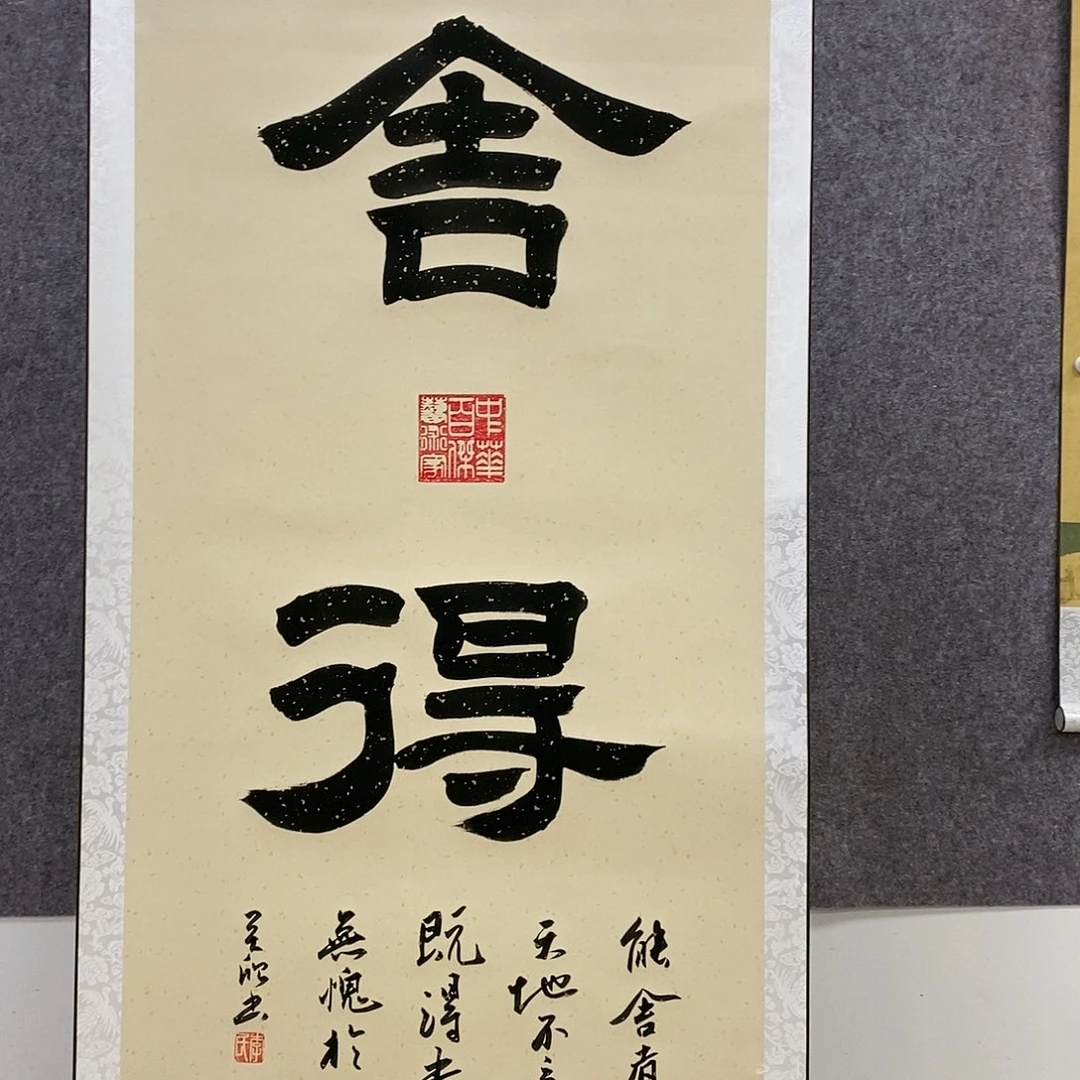 舍得
中華
百傑
藝術家
能舍者
天地不
既得
無愧於